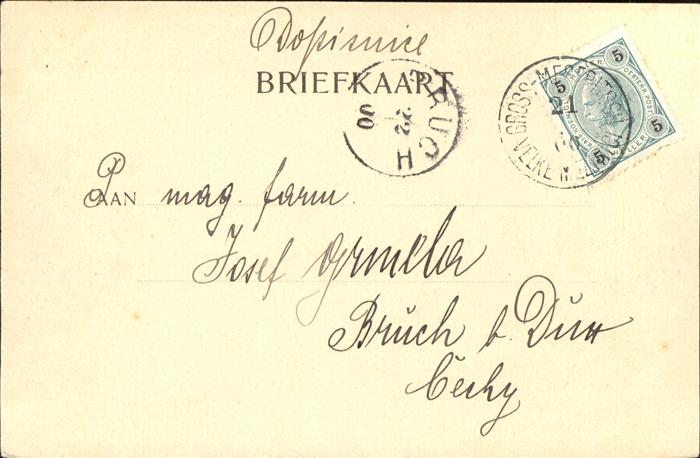 Dopisnice
BRIEFKAART
BRUCH
22
00
GROSS-MESERITSCH
21
VELKÉ
5
5
5
5
P. AAN mag. farm.
Josef
Bruch b. Dux
Čechy